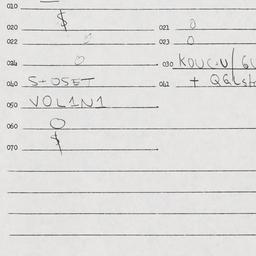 010
$
020 021 0
022 0 023 0
024 0 030 KOUC-U/
040 S+OSET 041 +
050 VOL1N1
060 0
$
070